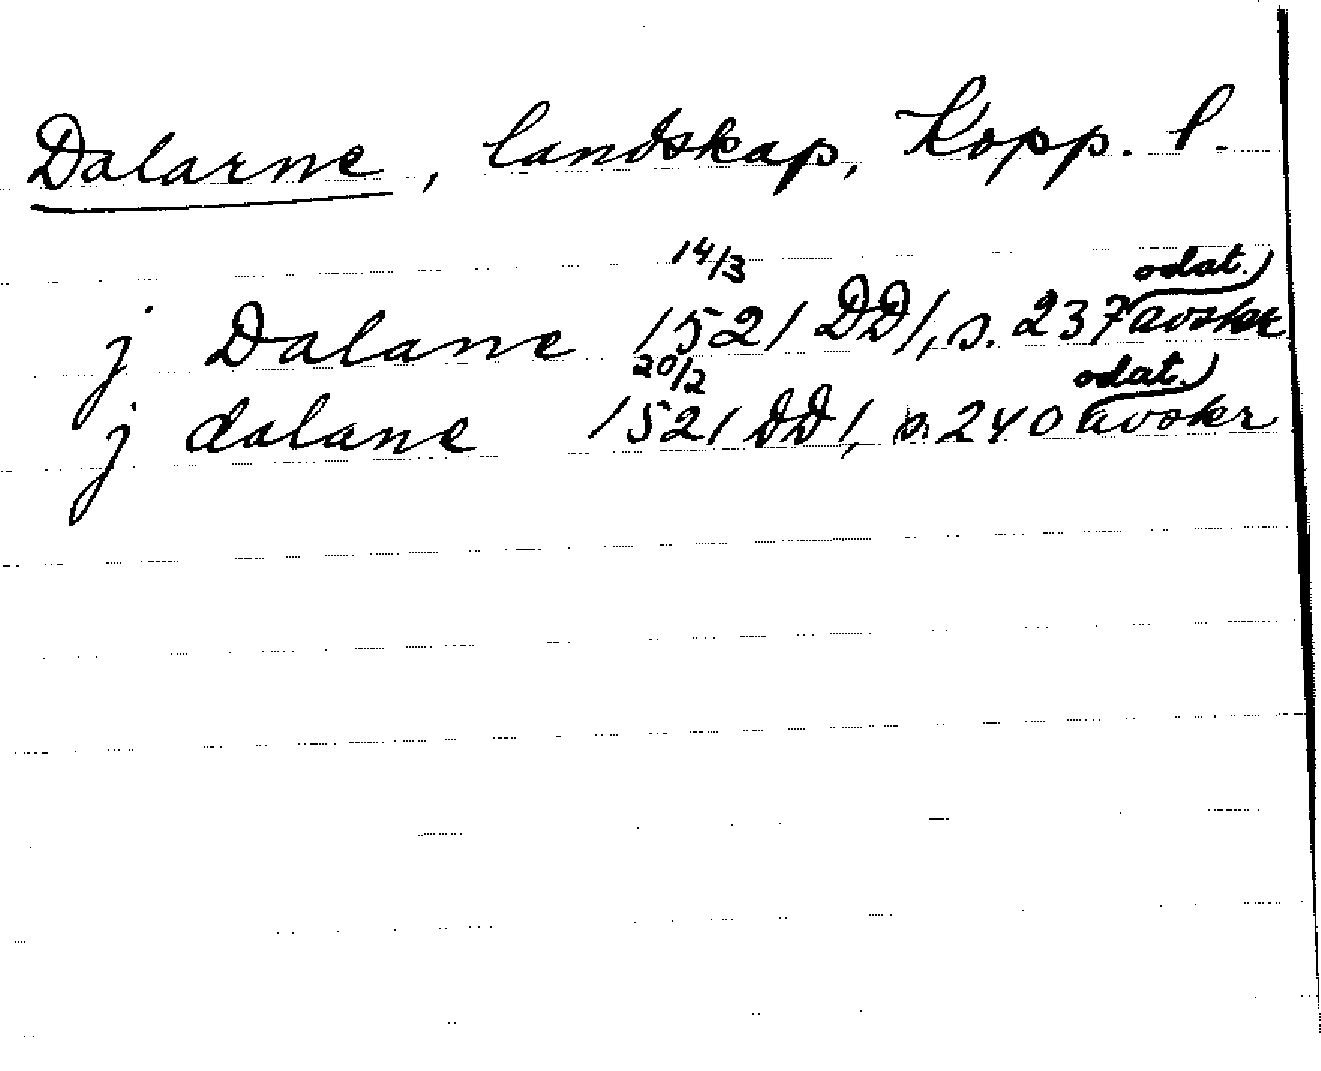 Dalarne, landskap, Kopp. l.
j Dalane 14/3 1521 DD1, s. 237 odat. avskr
j dalane 20/2 1521 DD1, s. 240 odat. avskr